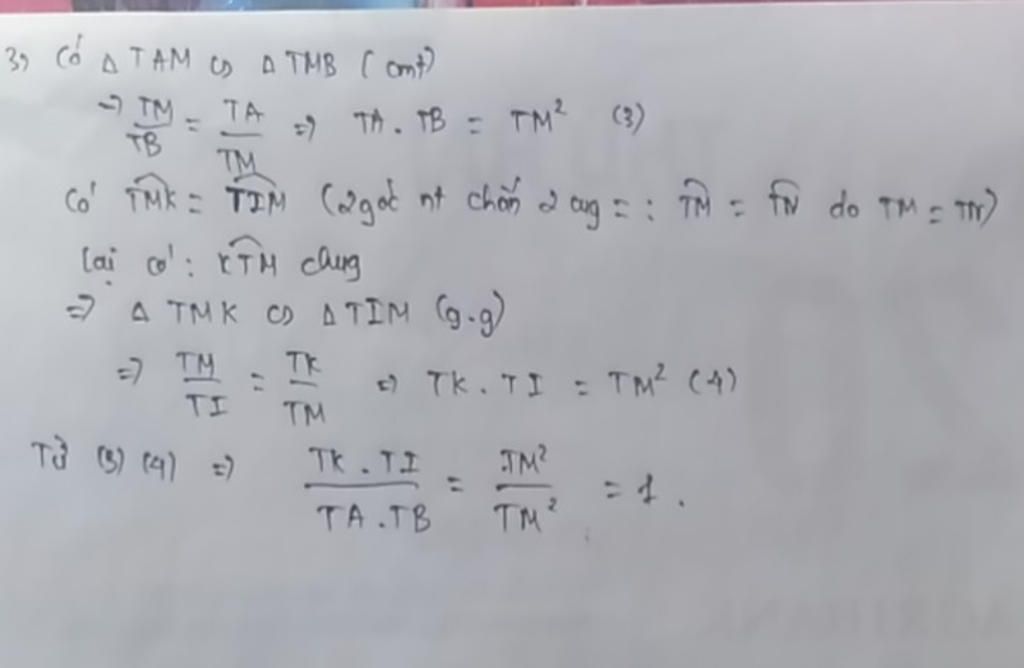 3, Có Δ TAM ∽ Δ TMB (cmt)
=> TM/TB = TA/TM => TA . TB = TM² (3)
Có TMK = TIM (2 góc nt chắn 2 cug = : TM = TN do TM = TN)
Lại có : KTM chug
=> Δ TMK ∽ Δ TIM (g.g)
=> TM/TI = TK/TM => TK . TI = TM² (4)
Từ (3) (4) => TK . TI / TA . TB = TM² / TM² = 1 .